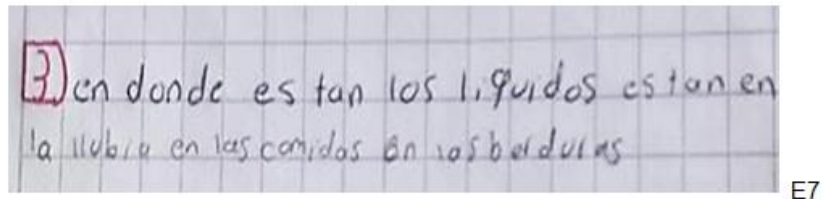 3) en donde es tan los liquidos es tan en
la llubia en las comidas en las berduras
E7